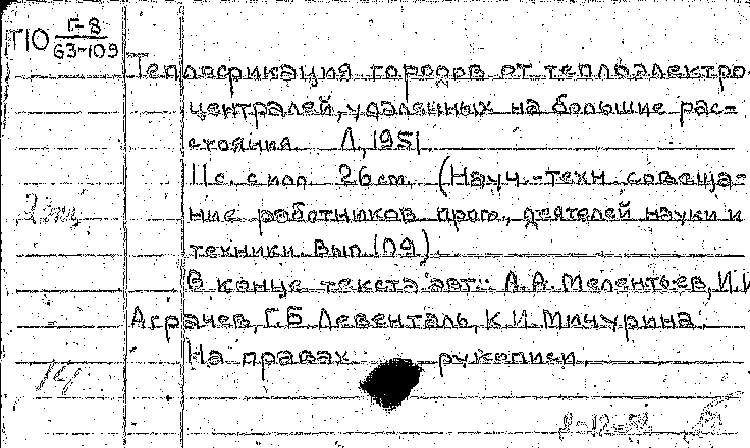 П10 Г-8
63-109
Теплофикация городов от теплоэлектро-
централей, удаленных на большие рас-
стояния. Л, 1951.
11 с. с илл 26 см. (Науч.-техн совеща-
ние работников пром., деятелей науки и
техники. Вып. 109).
В конце текста авт.: Л.А. Мелентьев, И.И
Аграчев, Г.Б. Левенталь, К.И. Мичурина.
На правах рукописи.